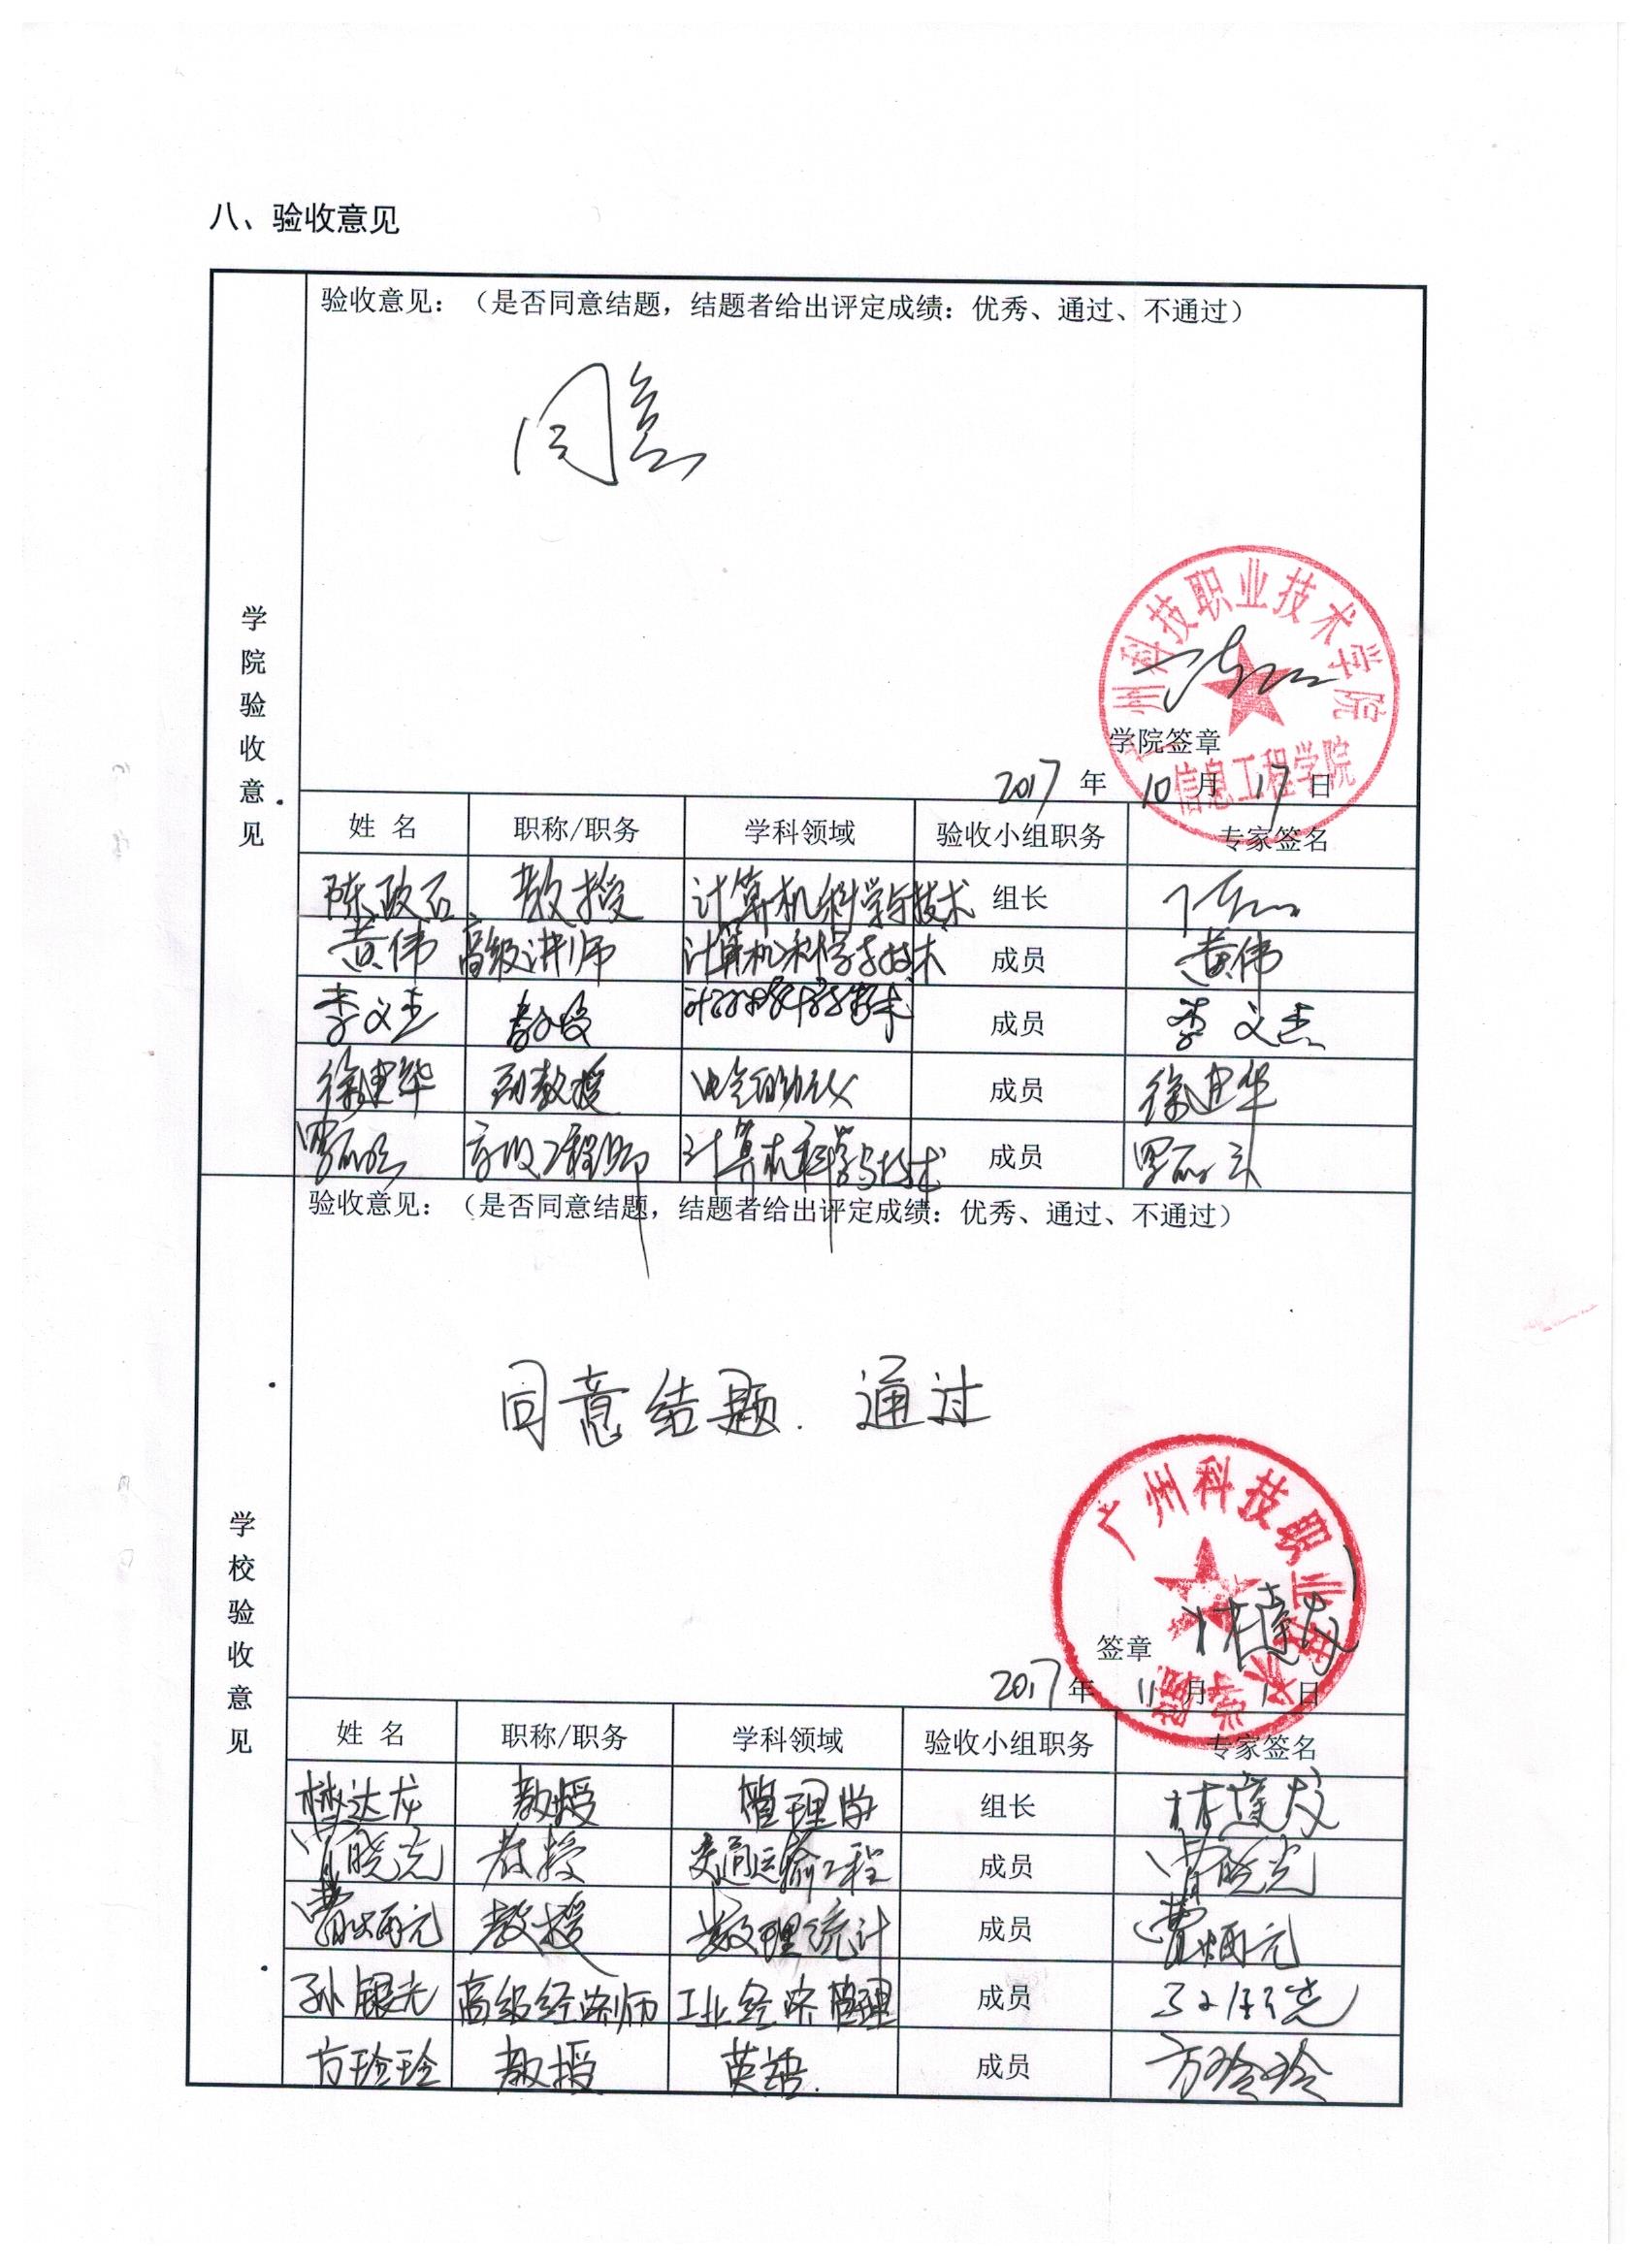 八、验收意见
验收意见：（是否同意结题，结题者给出评定成绩：优秀、通过、不通过）
同意
学院验收意见
广州科技职业技术学院
信息工程学院
学院签章
2017 年 10 月 17 日
姓 名 职称/职务 学科领域 验收小组职务 专家签名
陈政石 教授 计算机科学与技术 组长
黄伟 高级讲师 计算机科学与技术 成员 黄伟
李文杰 教授 计算机科学与技术 成员 李文杰
徐建华 副教授 电气自动化 成员 徐建华
高级工程师 计算机科学与技术 成员
验收意见：（是否同意结题，结题者给出评定成绩：优秀、通过、不通过）
同意结题. 通过
学校验收意见
广州科技职业技术学院
签章
2017 年 11 月 1 日
姓 名 职称/职务 学科领域 验收小组职务 专家签名
教授 管理学 组长
曾晓光 教授 交通运输工程 成员 曾晓光
曹炳元 教授 数理统计 成员 曹炳元
孙银光 高级经济师 工业经济管理 成员
方玲玲 教授 英语. 成员 方玲玲